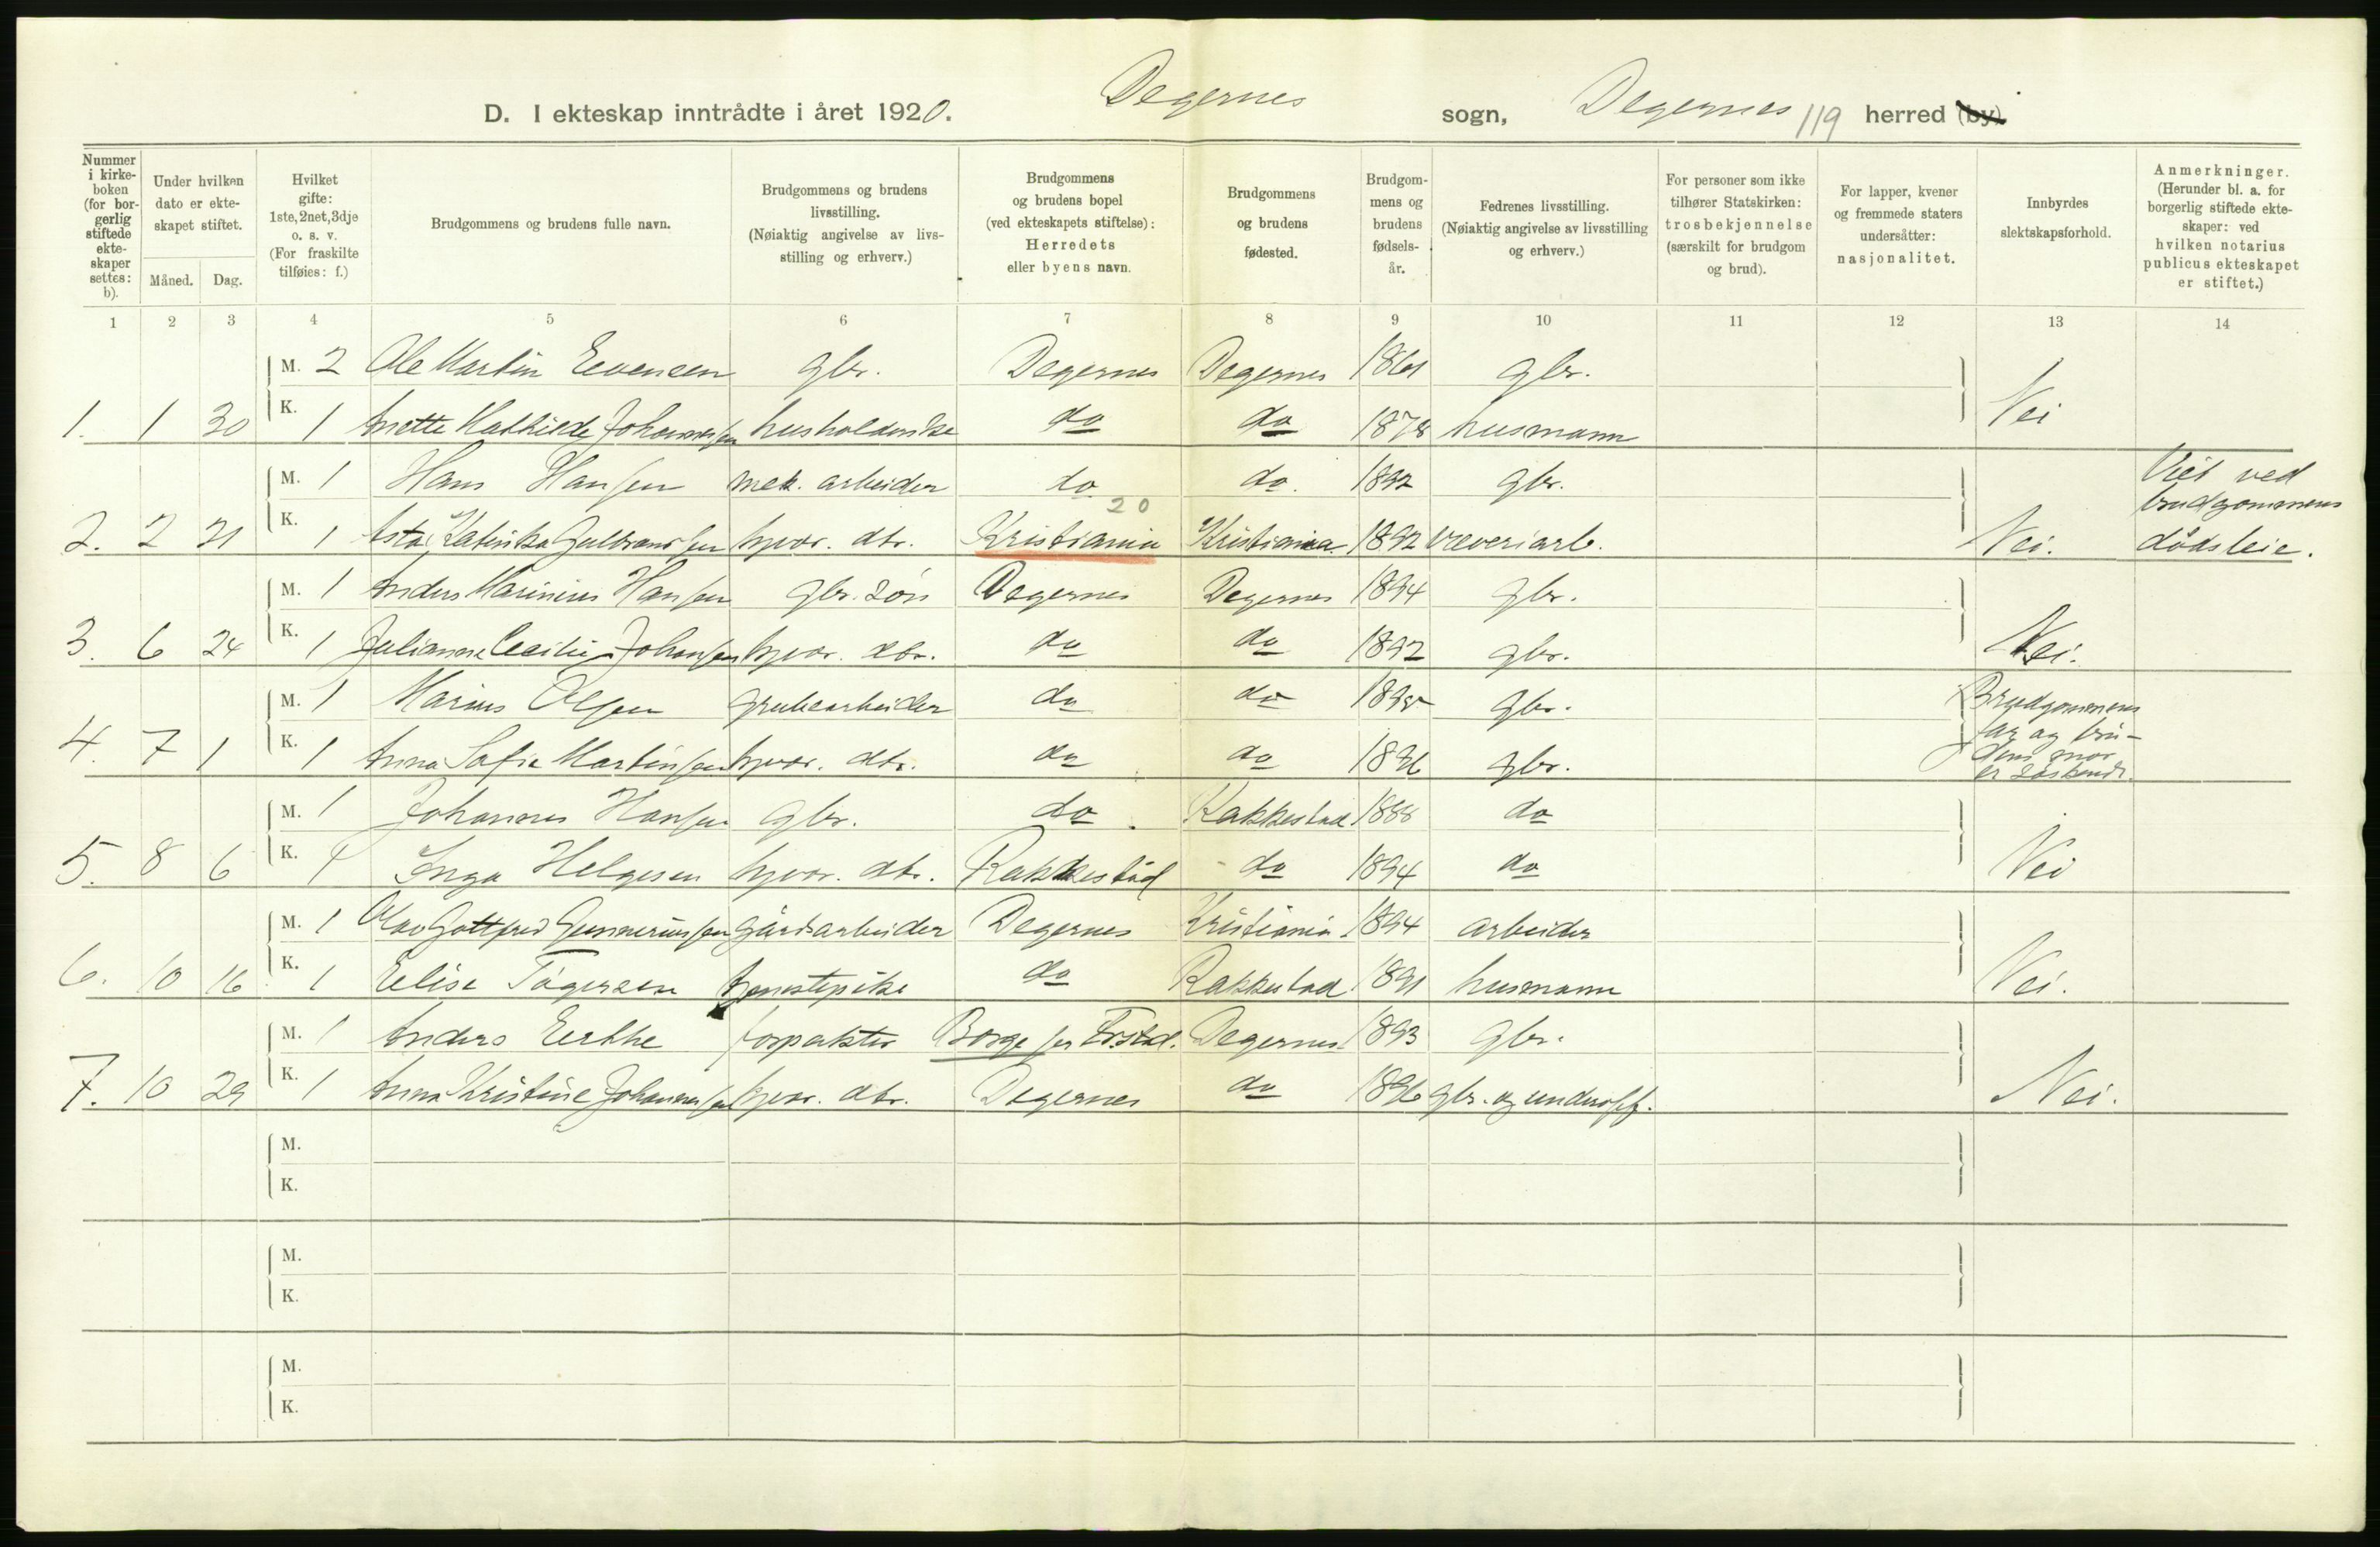 D. I ekteskap inntrådte i året 1920. Degernes sogn, Degernes 119 herred (by)
Nummer i kirke-boken (for bor-gerlig stiftede ekte-skaper settes: b).
Under hvilken dato er ekte-skapet stiftet.
Måned. Dag.
Hvilket gifte: 1ste, 2net, 3dje o. s. v. (For fraskilte tilføies: f.)
Brudgommens og brudens fulle navn.
Brudgommens og brudens livsstilling. (Nøiaktig angivelse av livs-stilling og erhverv.)
Brudgommens og brudens bopel (ved ekteskapets stiftelse): Herredets eller byens navn.
Brudgommens og brudens fødested.
Brudgom-mens og brudens fødsels-år.
Fedrenes livsstilling. (Nøiaktig angivelse av livsstilling og erhverv.)
For personer som ikke tilhører Statskirken: trosbekjennelse (særskilt for brudgom og brud).
For lapper, kvener og fremmede staters undersåtter: nasjonalitet.
Innbyrdes slektskapsforhold.
Anmerkninger. (Herunder bl. a. for borgerlig stiftede ekte-skaper: ved hvilken notarius publicus ekteskapet er stiftet.)
1 2 3 4 5 6 7 8 9 10 11 12 13 14
M. 2 Ole Martin Evensen gbr. Degernes Degernes 1861 gbr.
1. 1 30 K. 1 Anette Mathilde Johannessen husholderske do do 1878 husmann Nei
M. 1 Hans Hansen mek. arbeider do do. 1892 gbr. Viet ved
20 brudgommens
2. 2 21 K. 1 Asta Katinka Gulbrandsen hjvær. dtr. Kristiania Kristiania 1892 væveriarb. Nei. dødsleie.
M. 1 Anders Marinius Hansen gbr. søn Degernes Degernes 1894 gbr.
3. 6 24 K. 1 Julianne Cecilie Johansen hjvær. dtr. do do 1892 gbr. Nei.
M. 1 Marius Olsen grubearbeider do do gbr. Brudgommens
far og bru-
4. 7 1 K. 1 Anna Sofie Martinsen hjvær. dtr. do do 1896 gbr. dens mor
er søskende.
M. 1 Johannes Hansen gbr. do Rakkestad 1888 do
5. 8 6 K. 1 Inga Helgesen hjvær. dtr. Rakkestad do 1894 do Nei
M. 1 Olav Gottfred Gunneriussen gårdsarbeider Degernes Kristiania 1894 arbeider
6. 10 16 K. 1 Elise Tøgersen tjenestepike do Rakkestad 1891 husmann Nei.
M. 1 Anders forpakter Borge pr Fr.stad. Degernes 1893 gbr.
7. 10 29 K. 1 Anna Kristine Johannessen hjvær. dtr. Degernes do 1896 gbr. og underoff. Nei.
M.
K.
M.
K.
M.
K.